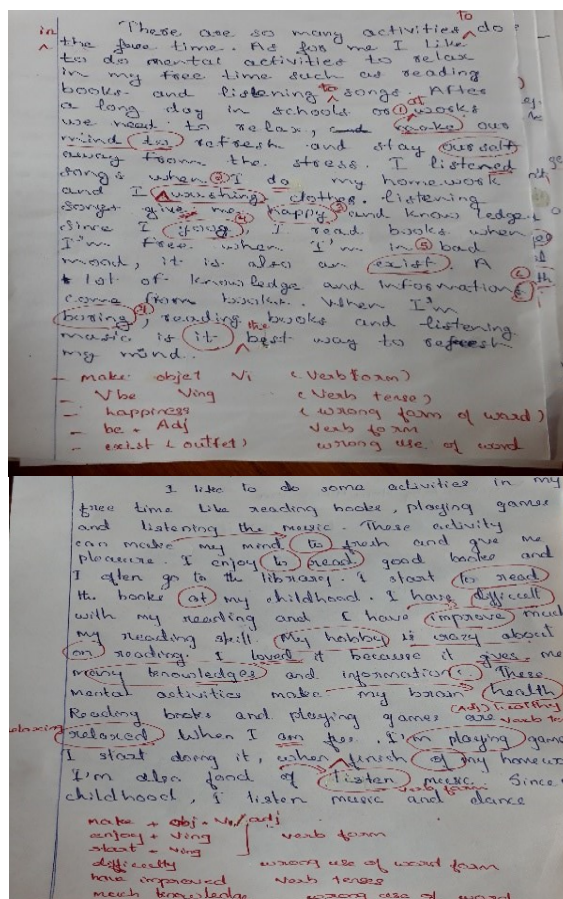 to
There are so many activities do
in
the free time. As for me I like
to do mental activities to relax
in my free time such as reading
books and listening to songs. After
a long day in schools or at works
we need to relax, and make our
miind to refresh and stay ourself
away from the stress. I listened
songs when I do my homework
and I wushing clothes. listening
songs give me happy and knowledge.
Since I young, I read books when
I'm free. when I'm in bad
mood, it is also an exist. A
lot of knowledge and informations
come from books. When I'm
boring, reading books and listening
the
music is it best way to refresh
my mind.
- make objet Vi (Verb form)
- Vbe Ving (Verb tense)
- happiness (wrong form of word)
- be + Adj Verb form
- exist (outlet) wrong use of word
I like to do some activities in my
free time like reading books, playing games
and listening the music. These activity
can make my mind to fresh and give me
pleasure. I enjoy to read good books and
I often go to the library. I start to read
the books at my childhood. I have difficelt
with my reading and I have improve much
my reading skill. My hobby is crazy about
on reading. I loved it because it gives me
many knowledges and information. These
mental activities make my brain health
(Adj) healthy
Reading books and playing games are verb te
relaxing
relaxed when I am free. I'm playing game
I start doing it, when finish of my homew
I'm also fond of listen music. Since
verb form
childhood, I listen music and dance
make + obj + V1/adj
enjoy + Ving verb form
start + ving
difficulty wrong use of word form
have improved verb tenses
much knowledge wrong use of word